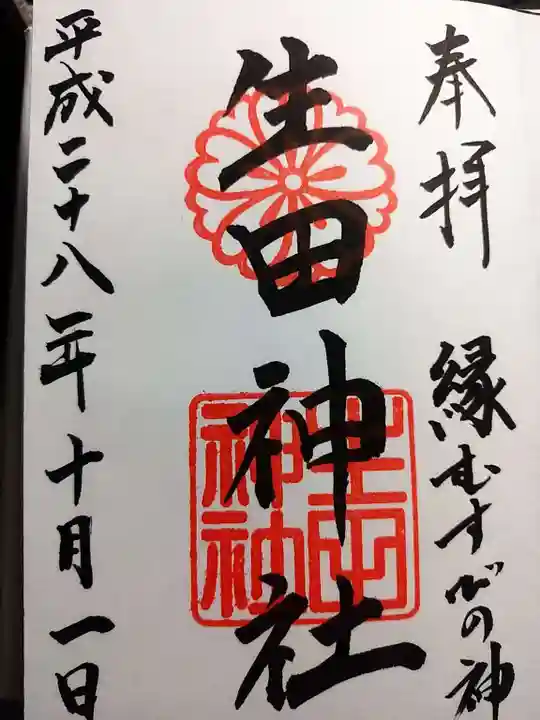 奉拝 縁むすびの神
生田神社
生田神社
平成二十八年十月一日